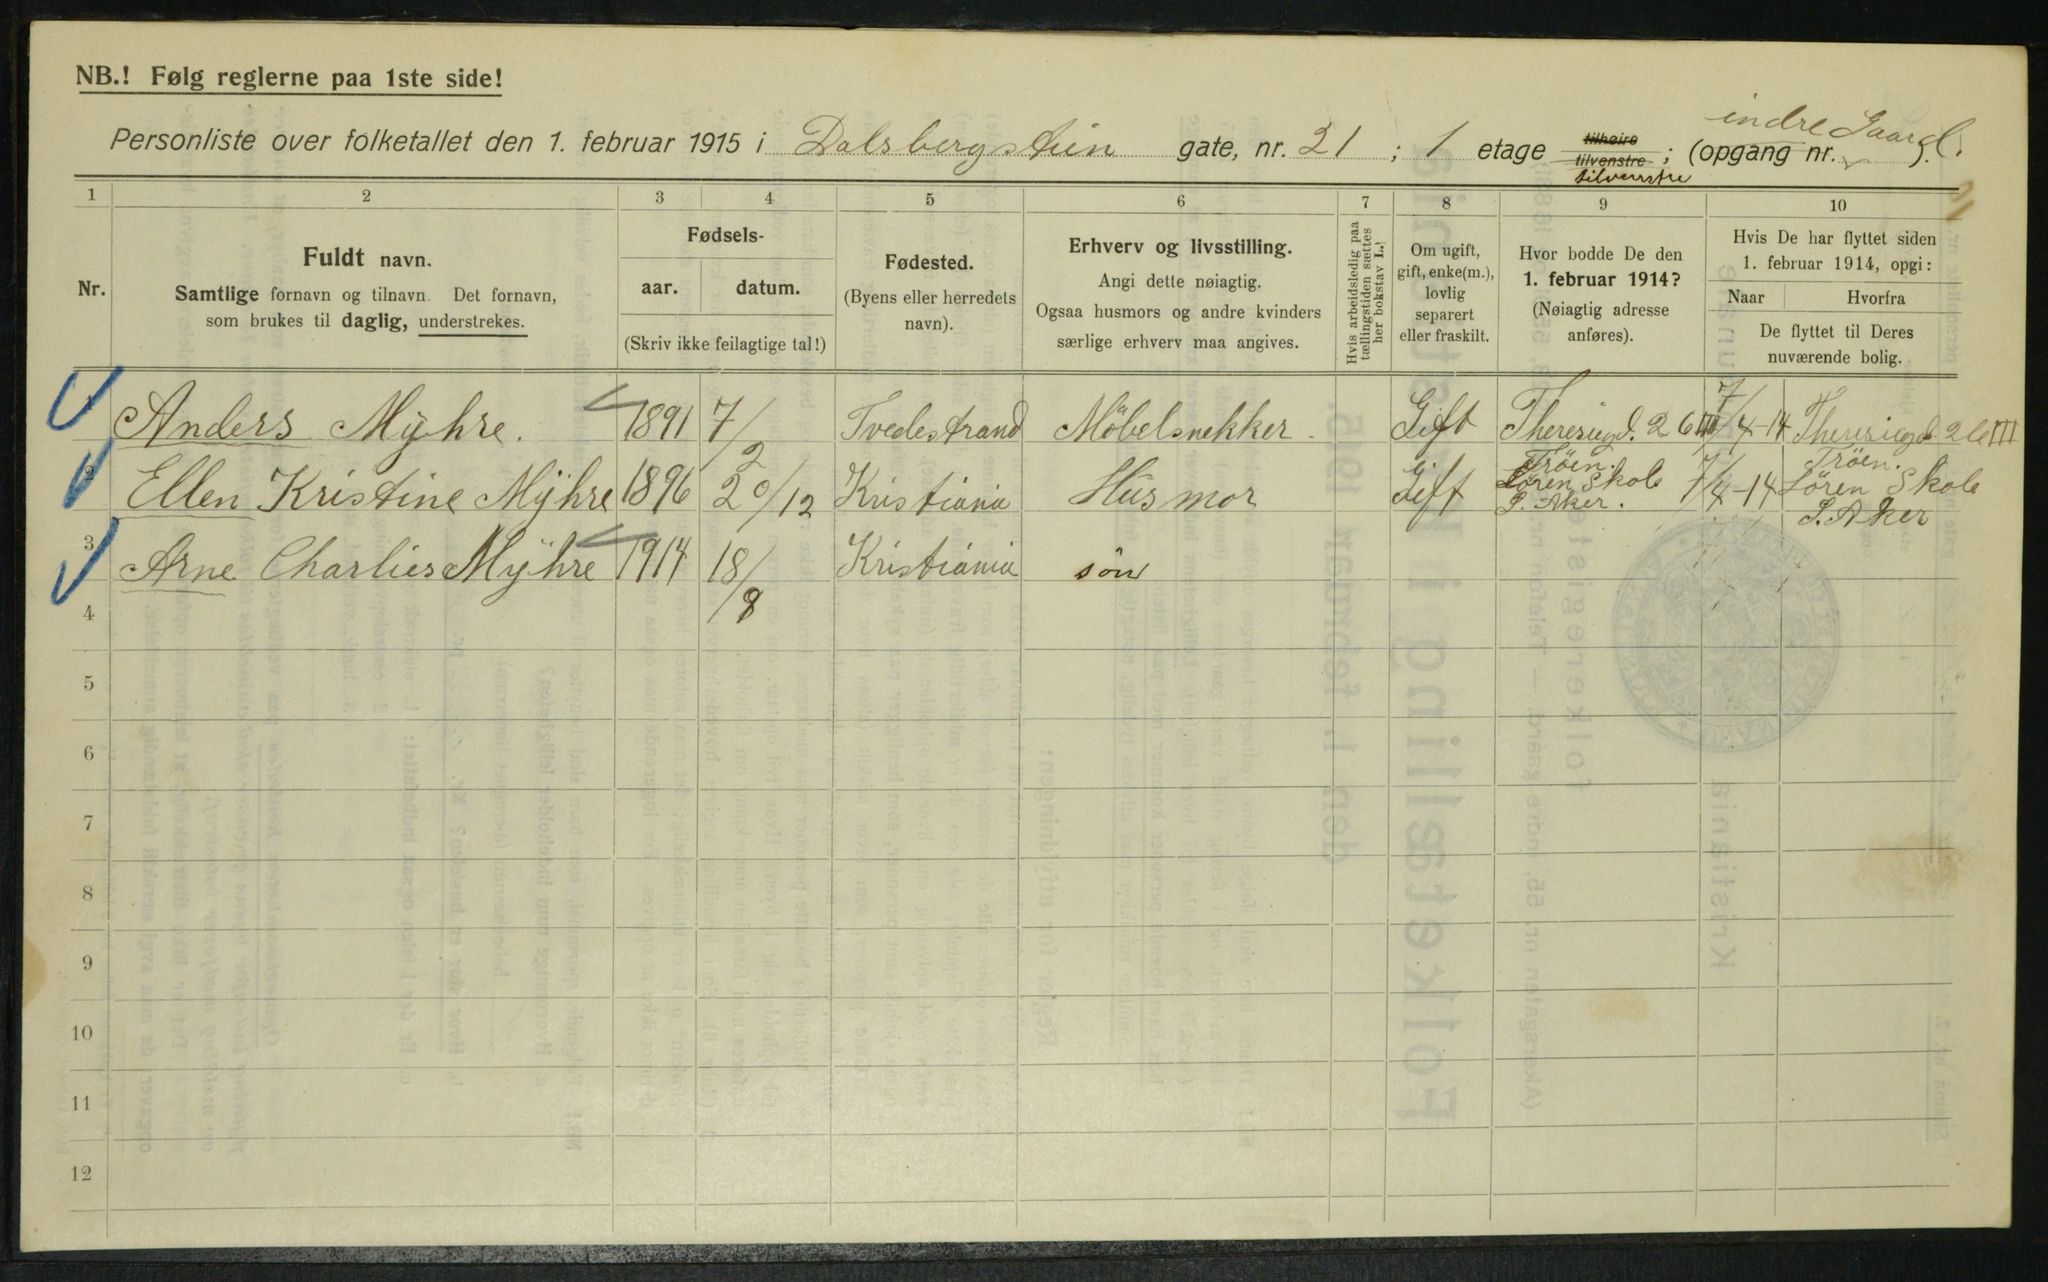 NB.! Følg reglerne paa 1ste side!
indre Gaard.
Personliste over folketallet den 1. februar 1915 i Dalsbergstien gate, nr. 21 ; 1 etage tilhøire tilvenstre ; (opgang nr. ).
tilvenstre
1 2 3 4 5 6 7 8 9 10
Nr.
Fuldt navn.
Samtlige fornavn og tilnavn. Det fornavn,
som brukes til daglig, understrekes.
Fødsels-
aar. datum.
(Skriv ikke feilagtige tal!)
Fødested.
(Byens eller herredets
navn).
Erhverv og livsstilling.
Angi dette nøiagtig.
Ogsaa husmors og andre kvinders
særlige erhverv maa angives.
Hvis arbeidsledig paa
tællingstiden sættes
her bokstav L.
Om ugift,
gift, enke(m.),
lovlig
separert
eller fraskilt.
Hvor bodde De den
1. februar 1914?
(Nøiagtig adresse
anføres).
Hvis De har flyttet siden
1. februar 1914, opgi:
Naar Hvorfra
De flyttet til Deres
nuværende bolig.
1 Anders Mÿhre. 1891 7/2 Tvedestrand Möbelsnekker. Gift Theresiegd. 26 III 7/4-14 Theresiegd. 26 III
2 Ellen Kristine Mÿhre 1896 20/12 Kristiania Husmor Gift Tröen. Lören Skole Ø. Aker. 7/4-14 Tröen. Lören Skole Ø. Aker
3 Arne Charlies Mÿhre 1914 18/8 Kristiania sön
4
5
6
7
8
9
10
11
12